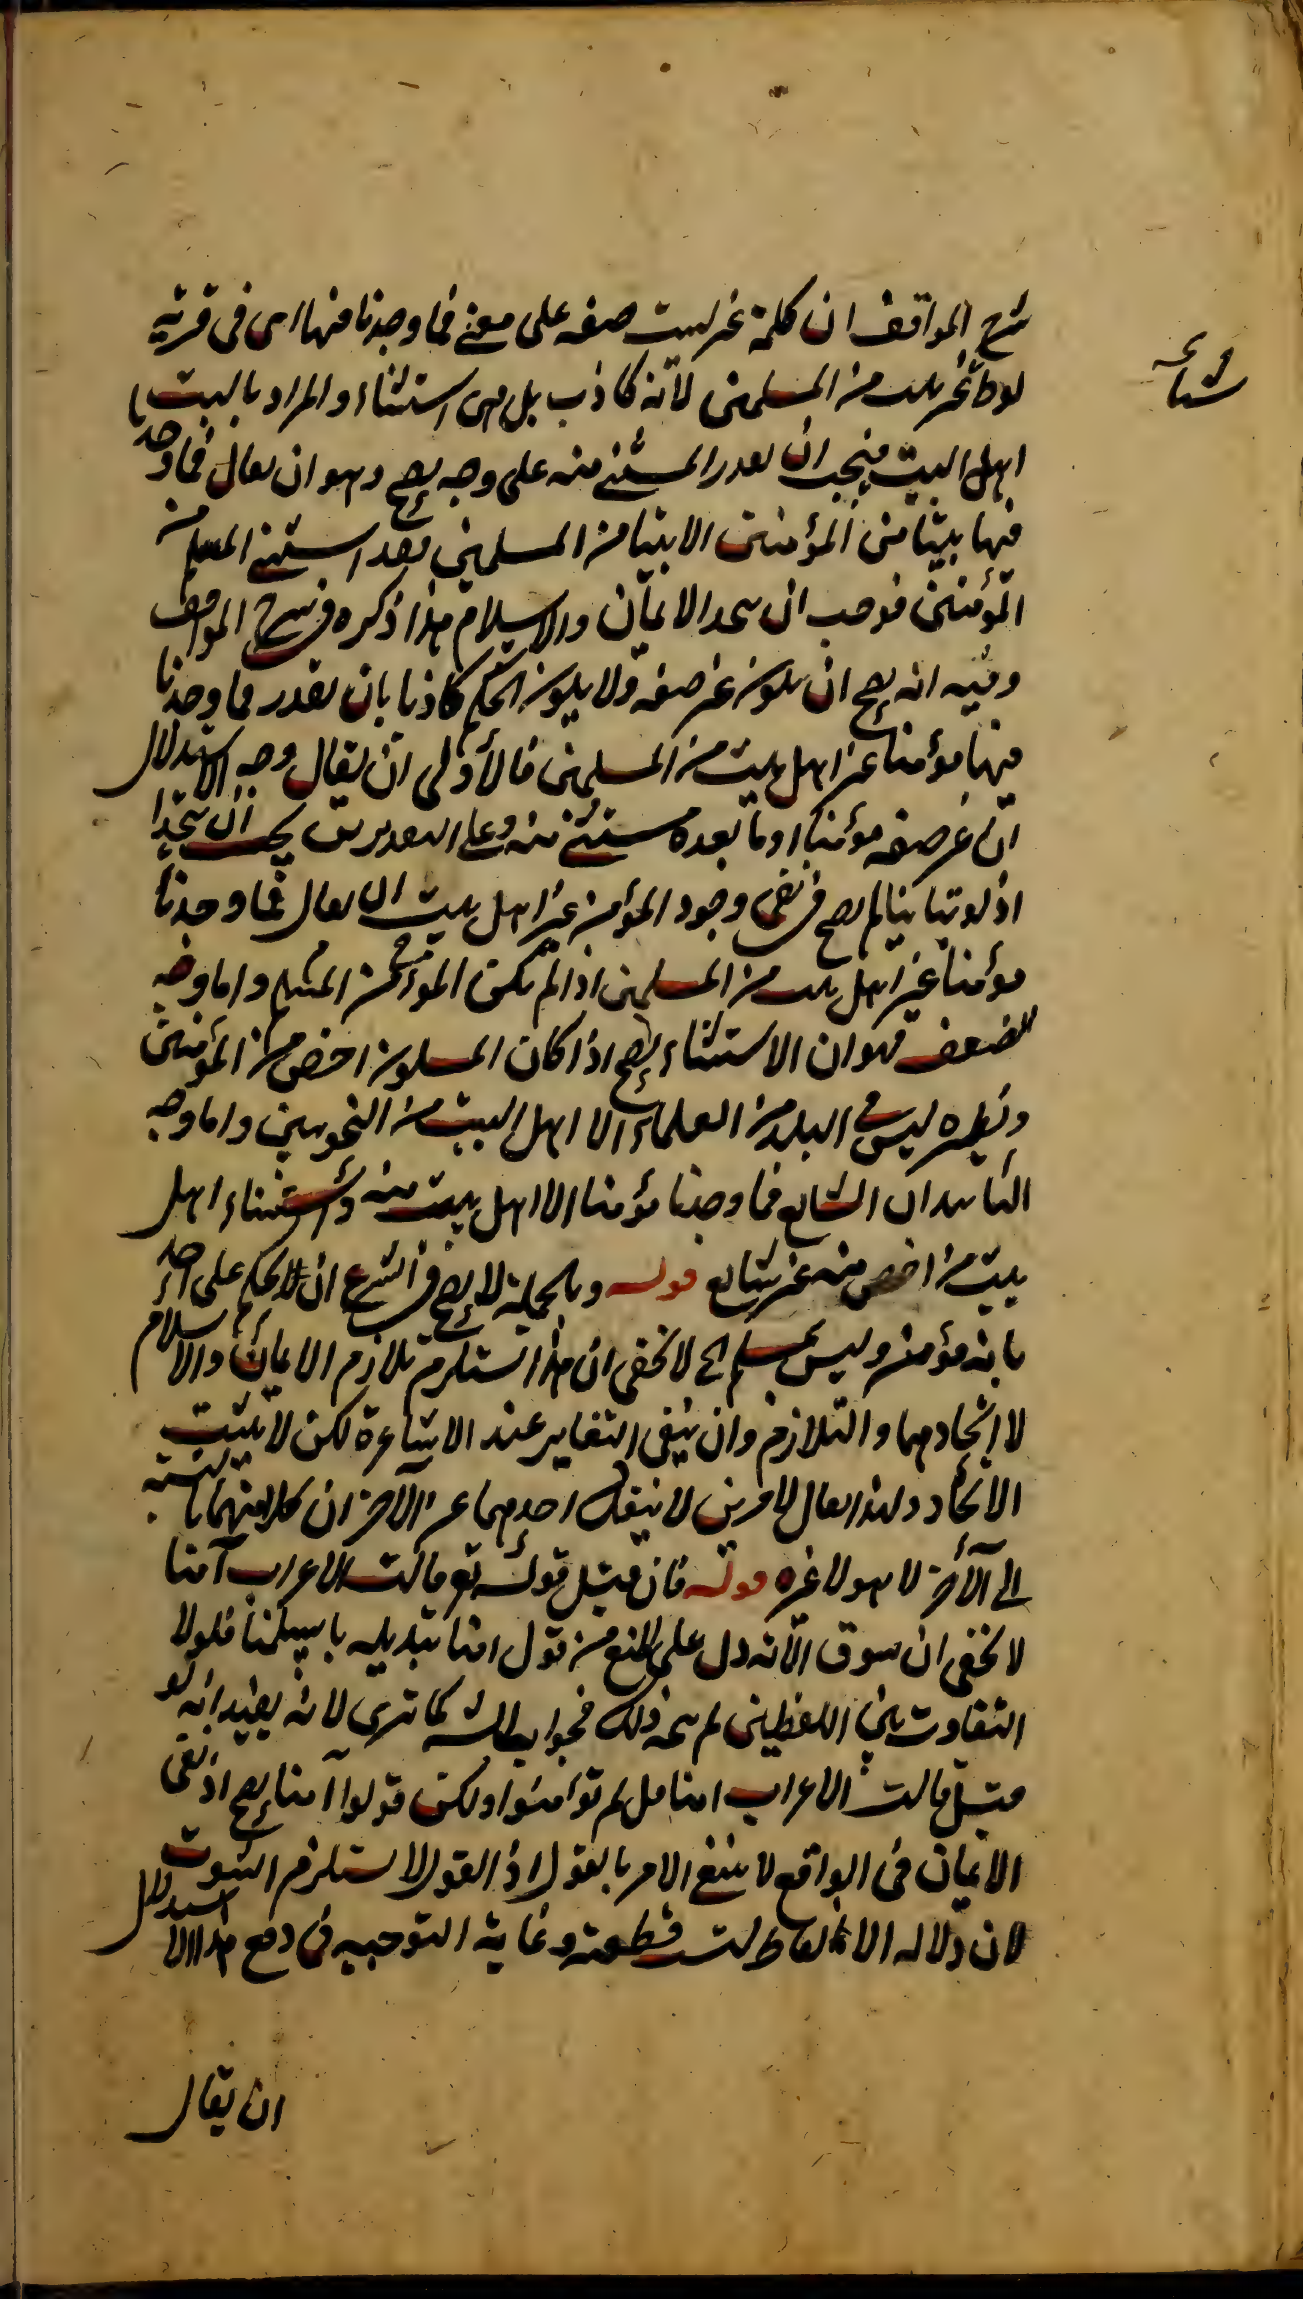 شرح المواقف ان كلمة غير ليست صفه على معنى فما وجدنا فيها اى فى قرية
لوط غير بيت من المسلمين لانه كاذب بل هى استثناء والمراد بالبيت
اهل البيت فيجب ان يقدر المستثنى منه على وجه يصح وهو ان يقال فما وجدنا
فيها بيتا من المؤمنين الا بيتا من المسلمين فقد استثنى المسلم من
المؤمنين فوجب ان يتحد الايمان والاسلام هذا ذكره فى شرح المواقف
وفيه انه يصح ان يكون غير صفه ولا يكون الحكم كاذبا بان يقدر فما وجدنا
فيها مؤمنا غير اهل بيت من المسلمين فالأولى ان يقال وجه الاستدلال
ان غير صفه مؤمنا او ما بعده مستثنى منه وعلى التقديرين يجب ان يتحدا
اذ لو تباينا لم يصح فى نفى وجود المؤمن غير اهل بيت ان يقال فما وجدنا
مؤمنا غير اهل بيت من المسلمين اذا لم يكن المؤمن من المسلم واما وجه
الضعف فهو ان الاستثناء يصح اذا كان المسلمون اخص من المؤمنين
ونظيره ليس فى البلد من العلماء الا اهل البيت من النحويين واما وجه
التأييد ان الشايع فما وجدنا مؤمنا الا اهل بيت منه واستثناء اهل
بيت من اخص منه غير شايع قوله وبالجملة لا يصح فى الشرع ان يحكم على احد
بانه مؤمن وليس بمسلم الخ لا يخفى ان هذا استلزم تلازم الايمان والاسلام
لا اتحادهما والتلازم وان ينفى التغاير عند الاشاعرة لكن لا يثبت
الاتحاد ولهذا يقال لامرين لا ينفك احدهما عن الآخر ان كلا منهما بالنسبة
الى الآخر لا هو ولا غيره قوله فان قيل قوله تع قالت الاعراب آمنا
لا يخفى ان سوق الآية دل على المنع من قول امنا بتبديله باسلمنا فلولا
التفاوت بين اللفظين لم يتجه ذلك فجواب الشه كما ترى لانه يفيد انه لو
قيل قالت الاعراب امنا قل لم تؤمنوا ولكن قولوا آمنا يصح اذ نفى
الايمان فى الواقع لا ينفع الامر بالقول اذ القول لا يستلزم الثبوت
لان دلاله الالفاظ ليست قطعية وغاية التوجيه فى دفع هذا الاستدلال
ان يقال